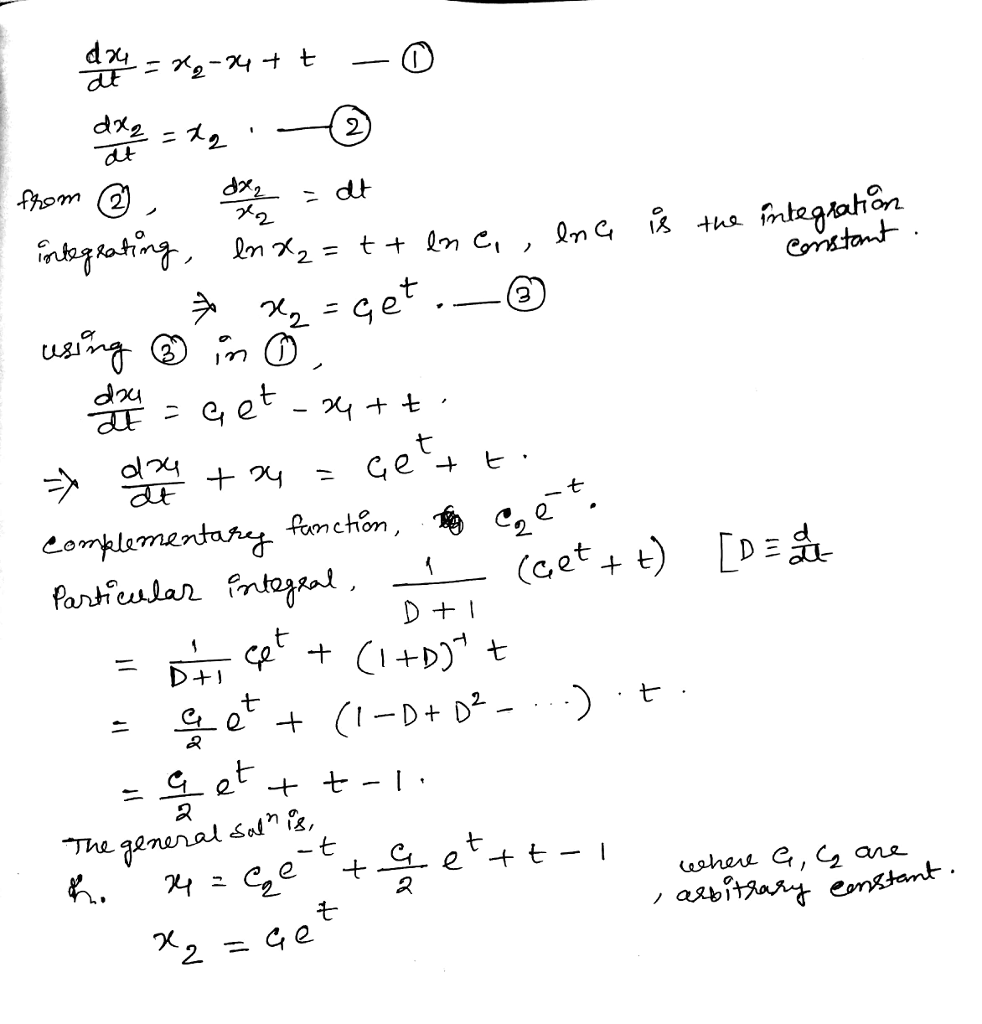 dx₁/dt = x₂ - x₁ + t — ①
dx₂/dt = x₂ . — ②
from ②, dx₂/x₂ = dt
integrating, ln x₂ = t + ln c₁, ln c₁ is the integration constant.
⇒ x₂ = c₁e^t . — ③
using ③ in ①,
dx₁/dt = c₁e^t - x₁ + t .
⇒ dx₁/dt + x₁ = c₁e^t + t .
complementary function, c₂e^-t .
Particular integral, 1/(D+1) (c₁e^t + t) [D ≡ d/dt
= 1/(D+1) c₁e^t + (1+D)^-1 t
= c₁/2 e^t + (1-D+D²-...) . t .
= c₁/2 e^t + t - 1 .
The general solⁿ is,
x₁ = c₂e^-t + c₁/2 e^t + t - 1 , where c₁, c₂ are arbitrary constant.
x₂ = c₁e^t